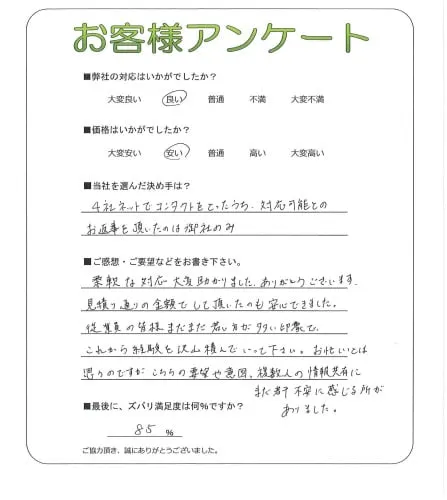 お客様アンケート
■弊社の対応はいかがでしたか？
大変良い 良い 普通 不満 大変不満
■価格はいかがでしたか？
大変安い 安い 普通 高い 大変高い
■当社を選んだ決め手は？
4社ネットでコンタクトをとったうち、対応可能との
お返事を頂いたのは御社のみ
■ご感想・ご要望などをお書き下さい。
柔軟な対応大変助かりました。ありがとうございます。
見積り通りの金額でして頂いたのも安心できました。
従業員の皆様まだまだ若い方が多い印象で、
これから経験を沢山積んでいって下さい。お忙しいとは
思うのですがこちらの要望や意図、複数人の情報共有に
まだ若干不安に感じる所が
ありました。
■最後に、ズバリ満足度は何％ですか？
85 ％
ご協力頂き、誠にありがとうございました。